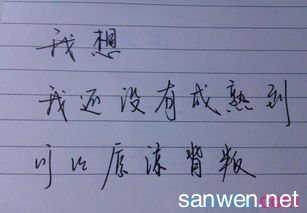 我想
我还没有成熟到
可以原谅背叛
sanwen.net